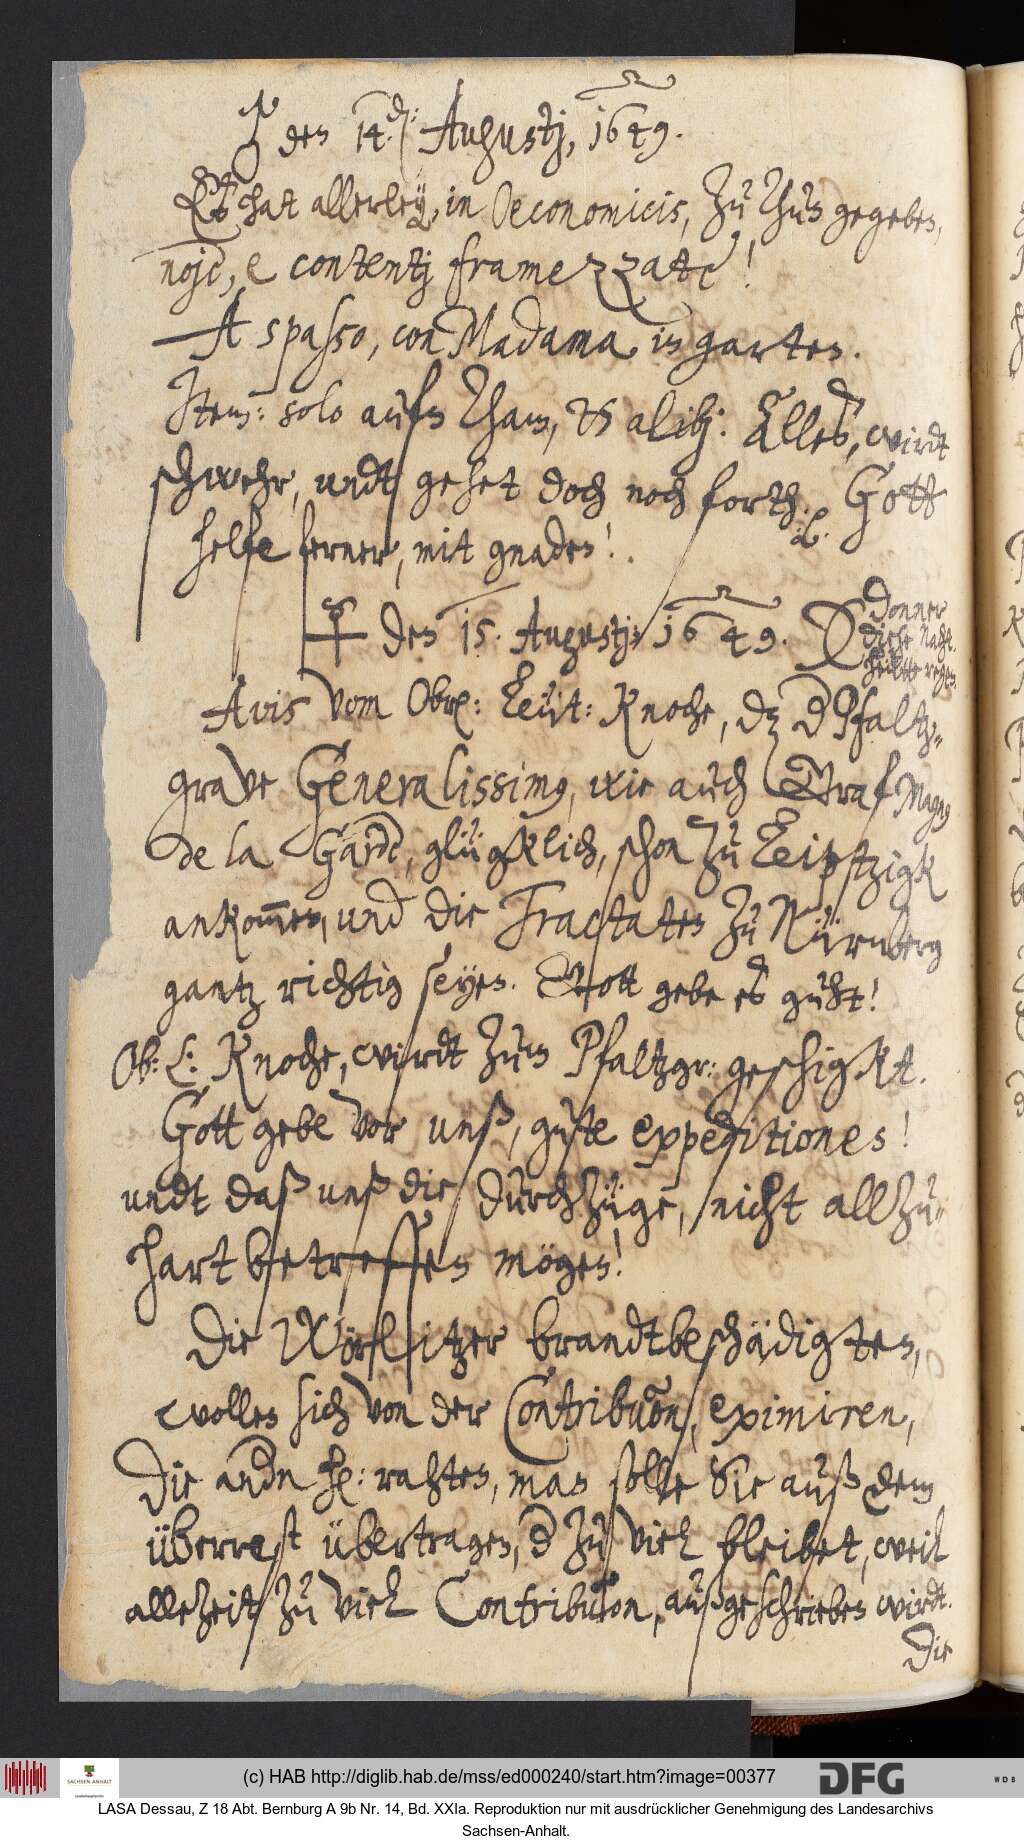 ♂ den 14. d: Augustj, 1649.
Es hat allerley, in Oeconomicis, zu thun gegeben,
noje, e contentj framezzate!
A spasso, con Madama, in garten.
Item: solo aufn Tham, & alibj. Alles, wirdt
schwehr, undt gehet doch noch forth. Gott
helfe ferner, mit gnaden!
☿ den 15. Augustj: 1649.
Donner
diese nacht.
hernach regen.
Avis vom Obr: Leut: Knoche, dz d Pfaltz-
grave Generalissimus, wie auch Graf Magnus
de la Garde, glügklich, schon zu Leiptzigk
ankommen, und die Tractaten zu Nürnberg
gantz richtig seyen. Gott gebe es guht!
Ob: L: Knoche, wirdt zum Pfaltzgr: geschigkt.
Gott gebe vor unß, gute expeditiones!
undt daß unß die durchzüge, nicht allzu-
hart betreffen mögen!
Die Wörlitzer brandtbeschädigten,
wollen sich von der Contribution, eximiren,
Die andn rahten, man solle Sie auß dem
überrest übertragen, d zu viel bleibet, weil
allezeit zu viel Contribution, außgeschrieben wirdt.
Die
(c) HAB http://diglib.hab.de/mss/ed000240/start.htm?image=00377
SACHSEN-ANHALT
DFG
WDB
LASA Dessau, Z 18 Abt. Bernburg A 9b Nr. 14, Bd. XXIa. Reproduktion nur mit ausdrücklicher Genehmigung des Landesarchivs
Sachsen-Anhalt.